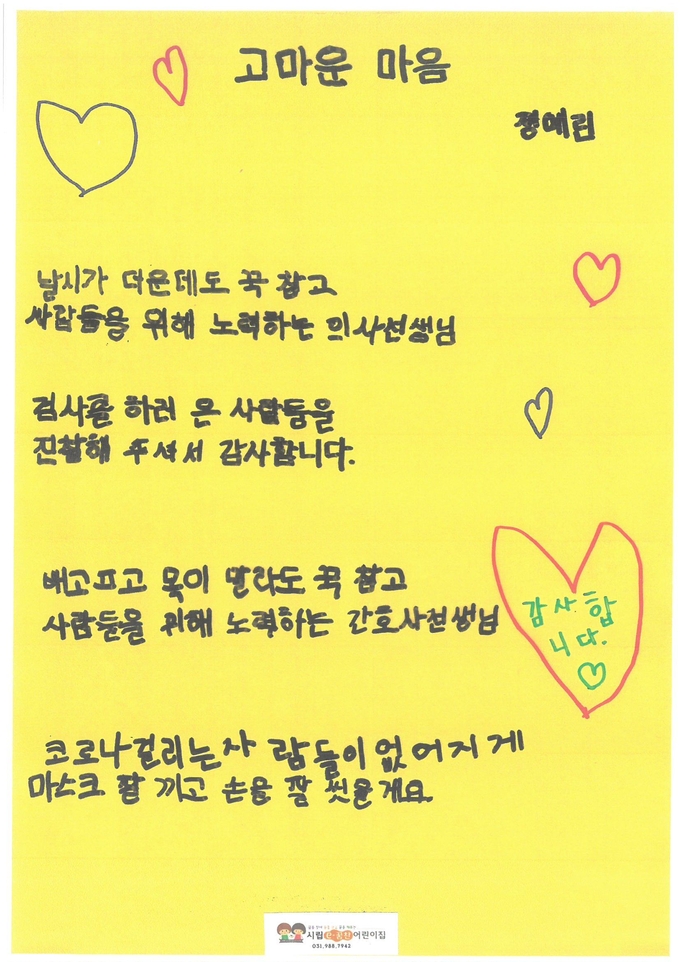 고마운 마음
정예린
날시가 더운데도 꾹 참고
사람들을 위해 노력하는 의사선생님
검사를 하러 온 사람들을
진찰해 주셔서 감사합니다.
배고프고 목이 말라도 꾹 참고
사람들을 위해 노력하는 간호사선생님
감사합
니다.
코로나걸리는사람들이없어지게
마스크 잘 끼고 손을 잘 씻을게요.
시립 어린이집
031.988.7942